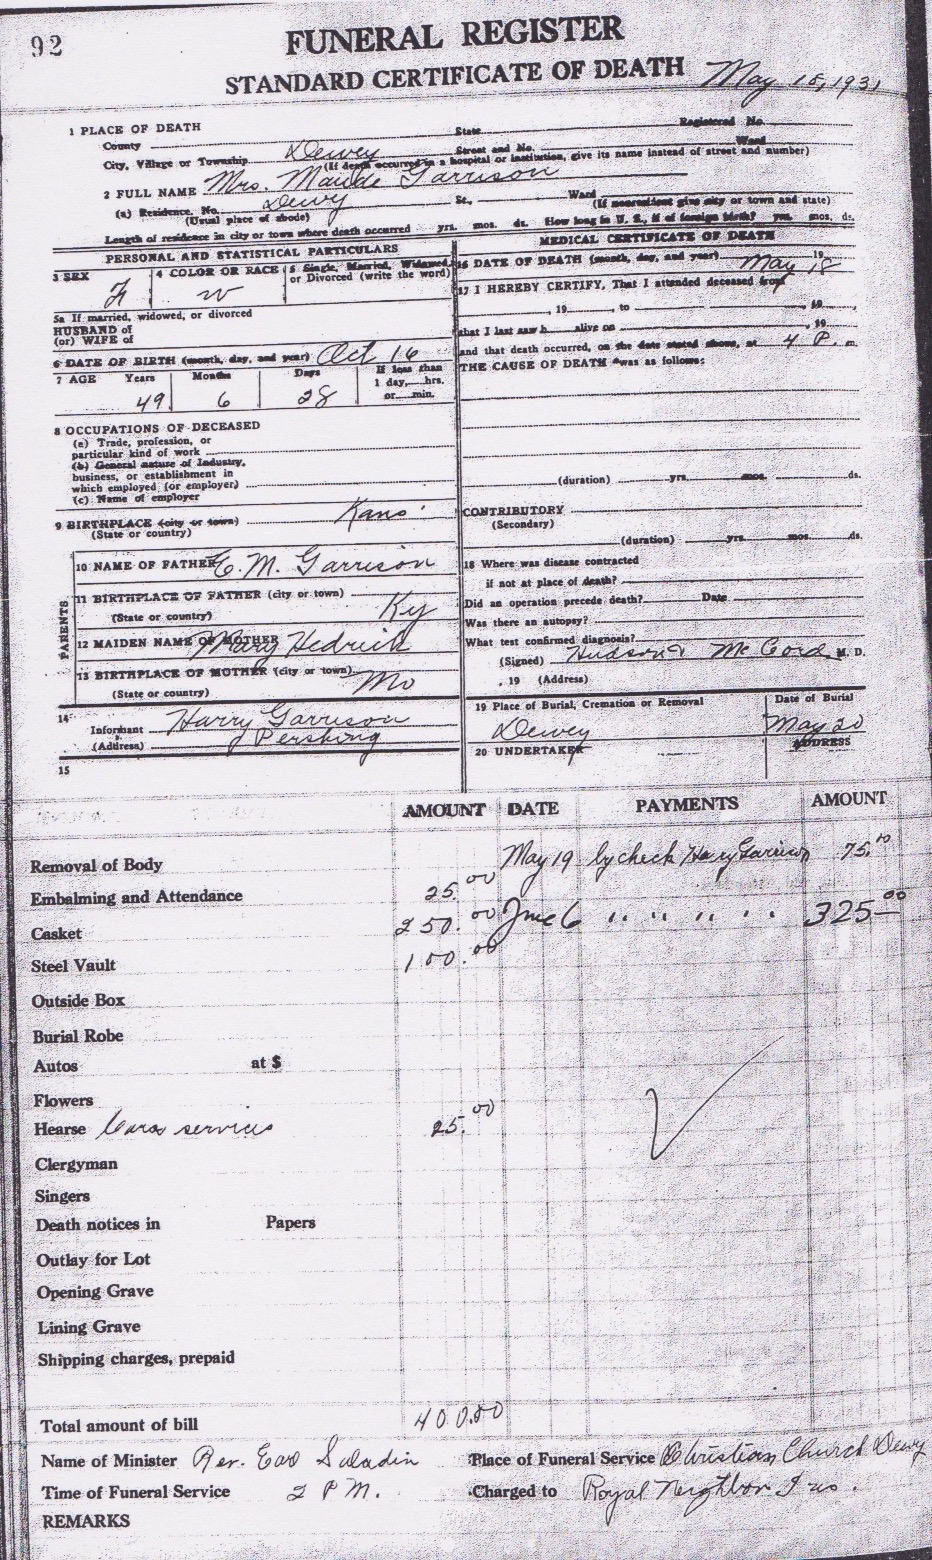 92
FUNERAL REGISTER
STANDARD CERTIFICATE OF DEATH May 18, 1931
1 PLACE OF DEATH
County State Registered No.
City, Village or Township Dewey Street and No. Ward
(If death occurred in a hospital or institution, give its name instead of street and number)
2 FULL NAME Mrs. Maude Garrison
(a) Residence. No. Dewey St., Ward
(Usual place of abode) (If nonresident give city or town and state)
Length of residence in city or town where death occurred yrs. mos. ds. How long in U. S., if of foreign birth? yrs. mos. ds.
PERSONAL AND STATISTICAL PARTICULARS
3 SEX 4 COLOR OR RACE 5 Single, Married, Widowed, or Divorced (write the word)
F W
5a If married, widowed, or divorced
HUSBAND of
(or) WIFE of
6 DATE OF BIRTH (month, day, and year) Oct 16
7 AGE Years Months Days If less than
1 day, hrs.
or min.
49 6 28
8 OCCUPATIONS OF DECEASED
(a) Trade, profession, or
particular kind of work
(b) General nature of Industry,
business, or establishment in
which employed (or employer)
(c) Name of employer
9 BIRTHPLACE (city or town)
(State or country) Kans.
PARENTS
10 NAME OF FATHER E. M. Garrison
11 BIRTHPLACE OF FATHER (city or town)
(State or country) Ky
12 MAIDEN NAME OF MOTHER Mary Hedrick
13 BIRTHPLACE OF MOTHER (city or town)
(State or country) Mo
14
Informant Harry Garrison
(Address) Pershing
15
MEDICAL CERTIFICATE OF DEATH
16 DATE OF DEATH (month, day, and year) May 18 19
17 I HEREBY CERTIFY, That I attended deceased from
, 19 , to , 19
that I last saw h alive on , 19
and that death occurred, on the date stated above, at 4 P. m.
THE CAUSE OF DEATH *was as follows:
(duration) yrs. mos. ds.
CONTRIBUTORY
(Secondary)
(duration) yrs. mos. ds.
18 Where was disease contracted
if not at place of death?
Did an operation precede death? Date
Was there an autopsy?
What test confirmed diagnosis?
(Signed) Hudson & McCord M. D.
, 19 (Address)
19 Place of Burial, Cremation or Removal Date of Burial
Dewey May 20
20 UNDERTAKER ADDRESS
AMOUNT DATE PAYMENTS AMOUNT
Removal of Body May 19 by check Harry Garrison 75.00
Embalming and Attendance 25.00
Casket 250.00 June 6 " " " " 325.00
Steel Vault 100.00
Outside Box
Burial Robe
Autos at $
Flowers
Hearse Cars services 25.00
Clergyman
Singers
Death notices in Papers
Outlay for Lot
Opening Grave
Lining Grave
Shipping charges, prepaid
Total amount of bill 400.00
Name of Minister Rev. Earl Place of Funeral Service Christian Church Dewey
Time of Funeral Service 2 P M. Charged to Royal Neighbor Ins.
REMARKS